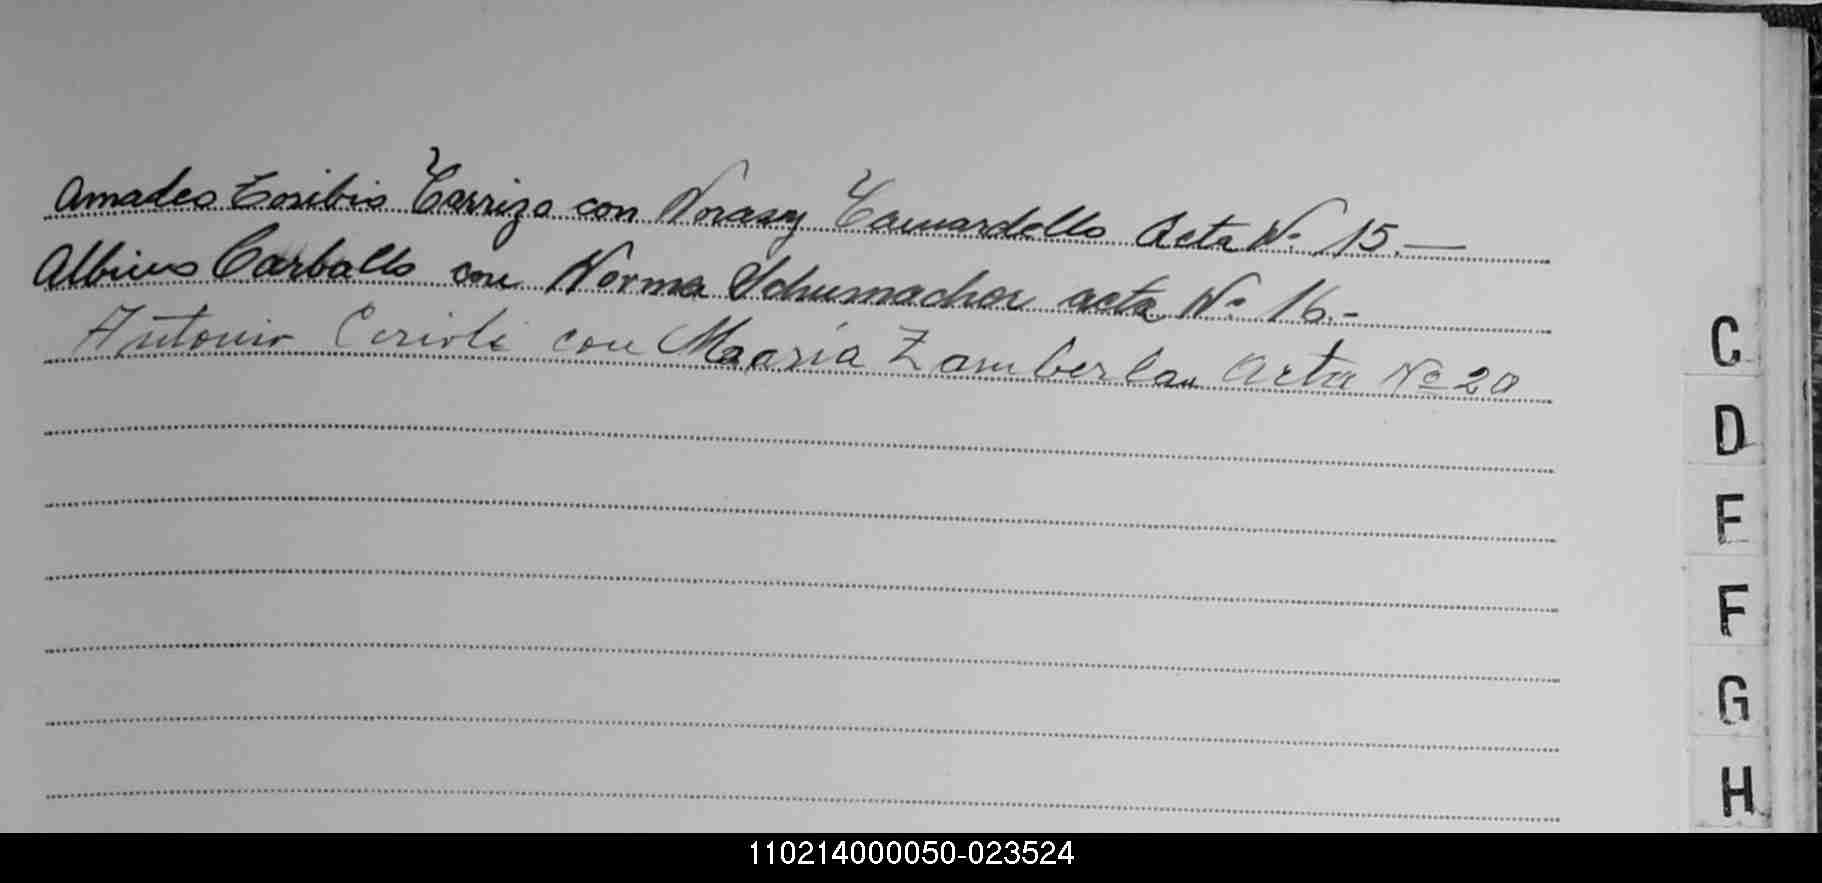 Amadeo Toribio Carrizo con Norasy Camardello Acta Nº 15.—
Albino Carballo con Norma Schumacher acta Nº 16.-
Antonio Cerioli con Maaria Zamberlan Acta Nº 20
C
D
E
F
G
H
110214000050-023524